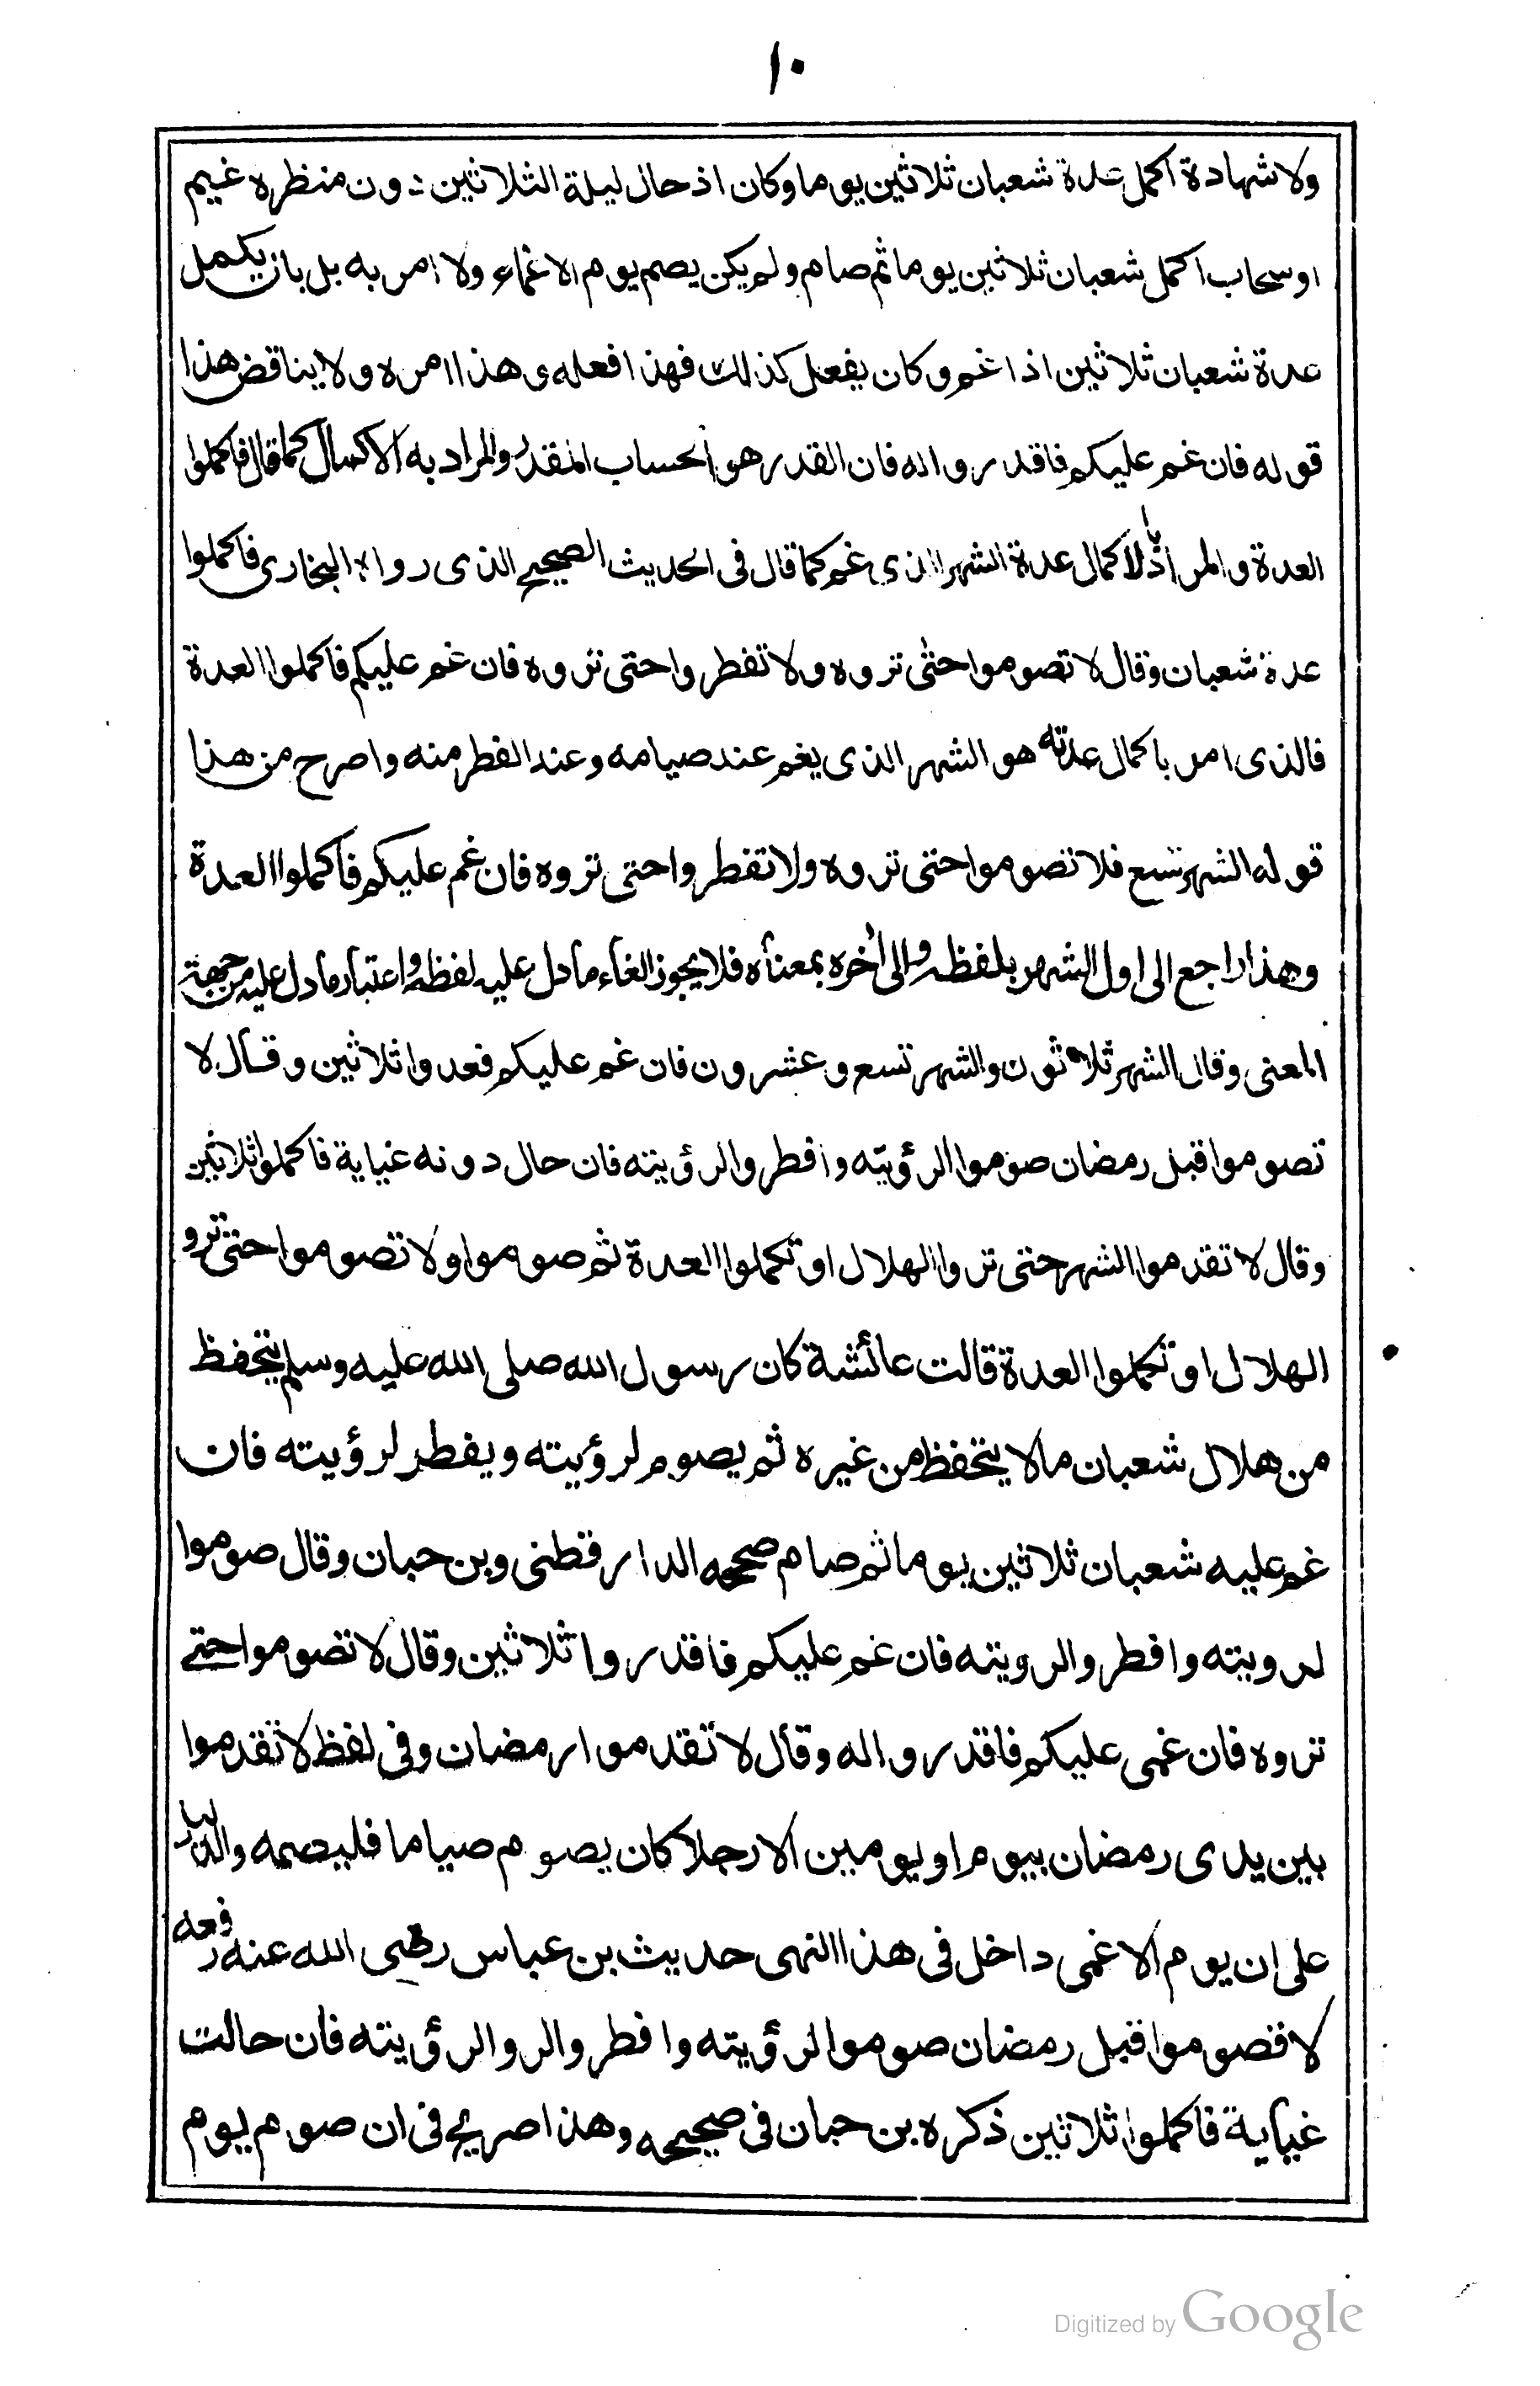 ١٠
ولا شهادة اكمل عدة شعبان ثلاثين يوما وكان اذ حال ليلة الثلاثين دون منظره غيم
او سحاب اكمل شعبان ثلاثين يوما ثم صام ولم يكن يصم يوم الاغماء ولا امر به بل بان يكمل
عدة شعبان ثلاثين اذا غم وكان يفعل كذلك فهذا فعله وهذا امره ولا يناقض هذا
قوله فان غم عليكم فاقدروا له فان القدر هو الحساب المقدر والمراد به الاكمال كما قال فاكملوا
العدة والمراد بالاكمال عدة الشهر الذي غم كما قال فى الحديث الصحيح الذى رواه البخارى فاكملوا
عدة شعبان وقال لا تصوموا حتى تروه ولا تفطروا حتى تروه فان غم عليكم فاكملوا العدة
فالذى امر باكمال عدته هو الشهر الذى يغم عند صيامه وعند الفطر منه واصرح من هذا
قوله الشهر تسع فلا تصوموا حتى تروه ولا تفطروا حتى تروه فان غم عليكم فاكملوا العدة
وهذا راجع الى اول الشهر بلفظه والى اخره بمعناه فلا يجوز الغاء ما دل عليه لفظه واعتبار ما دل عليه من جهة
المعنى وقال الشهر ثلاثون والشهر تسع وعشرون فان غم عليكم فعدوا ثلاثين وقال لا
تصوموا قبل رمضان صوموا الرؤيته وافطروا لرؤيته فان حال دونه غيابة فاكملوا ثلاثين
وقال لا تقدموا الشهر حتى تروا الهلال او تكملوا العدة ثم صوموا ولا تصوموا حتى ترو
الهلال او تكملوا العدة قالت عائشة كان رسول الله صلى الله عليه وسلم يتحفظ
من هلال شعبان ما لا يتحفظ من غيره ثم يصوم لرؤيته ويفطر لرؤيته فان
غم عليه شعبان ثلاثين يوما ثم صام صححه الدارقطنى وبن حبان وقال صوموا
لرويته وافطروا لرويته فان غم عليكم فاقدروا ثلاثين وقال لا تصوموا حتى
تروه فان غمى عليكم فاقدروا له وقال لا تقدموا رمضان وفى لفظ لا تقدموا
بين يدى رمضان بيوم او يومين الا رجلا كان يصوم صياما فليصمه والدليل
على ان يوم الاغمى داخل فى هذا النهى حديث بن عباس رضى الله عنه رفعه
لا تصوموا قبل رمضان صوموا لرؤيته وافطروا لروالرؤيته فان حالت
غيابة فاكملوا ثلاثين ذكره بن حبان فى صحيحه وهذا صريح فى ان صوم يوم
Digitized by Google